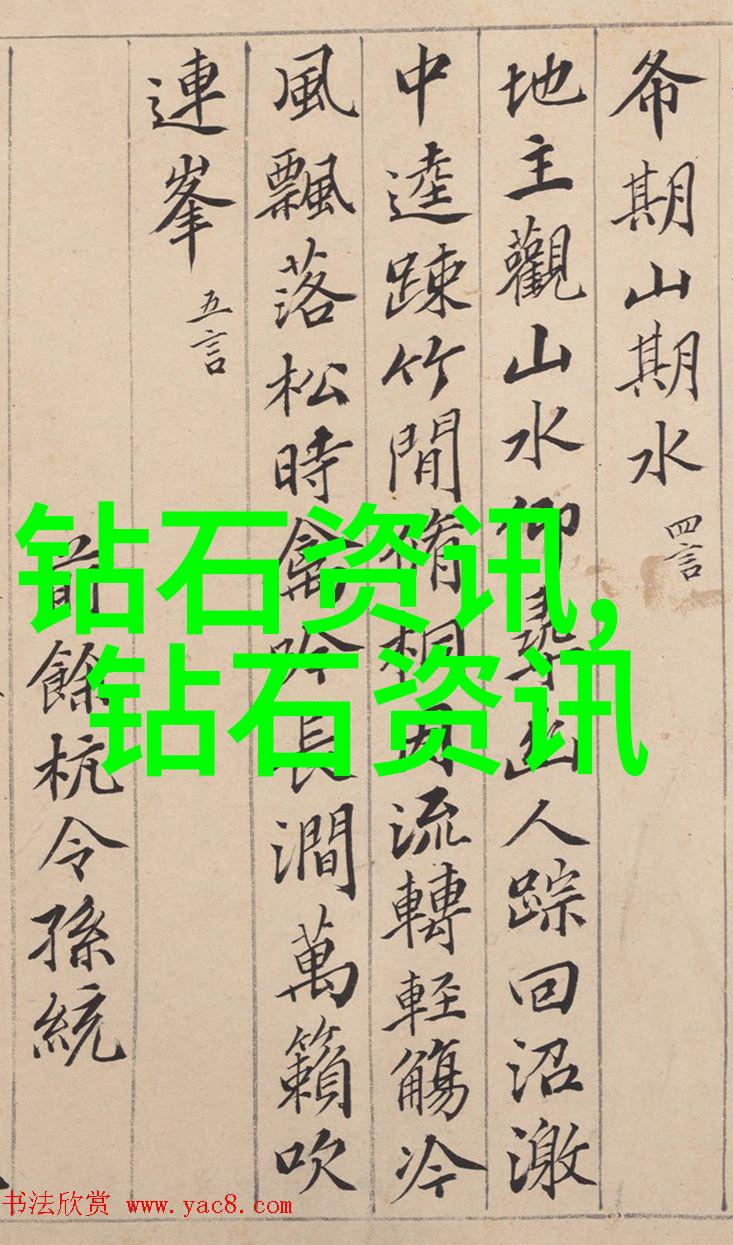 希期山期水 四言
地主觀山水仰尋幽人踪回沼激
中逵踈竹間脩桐因流轉輕觴冷
風飄落松時禽吟長澗萬籟吹
連峯 五言
前餘杭令孫統
钻石资讯,
钻石资讯
书法欣赏 www.yac8.com